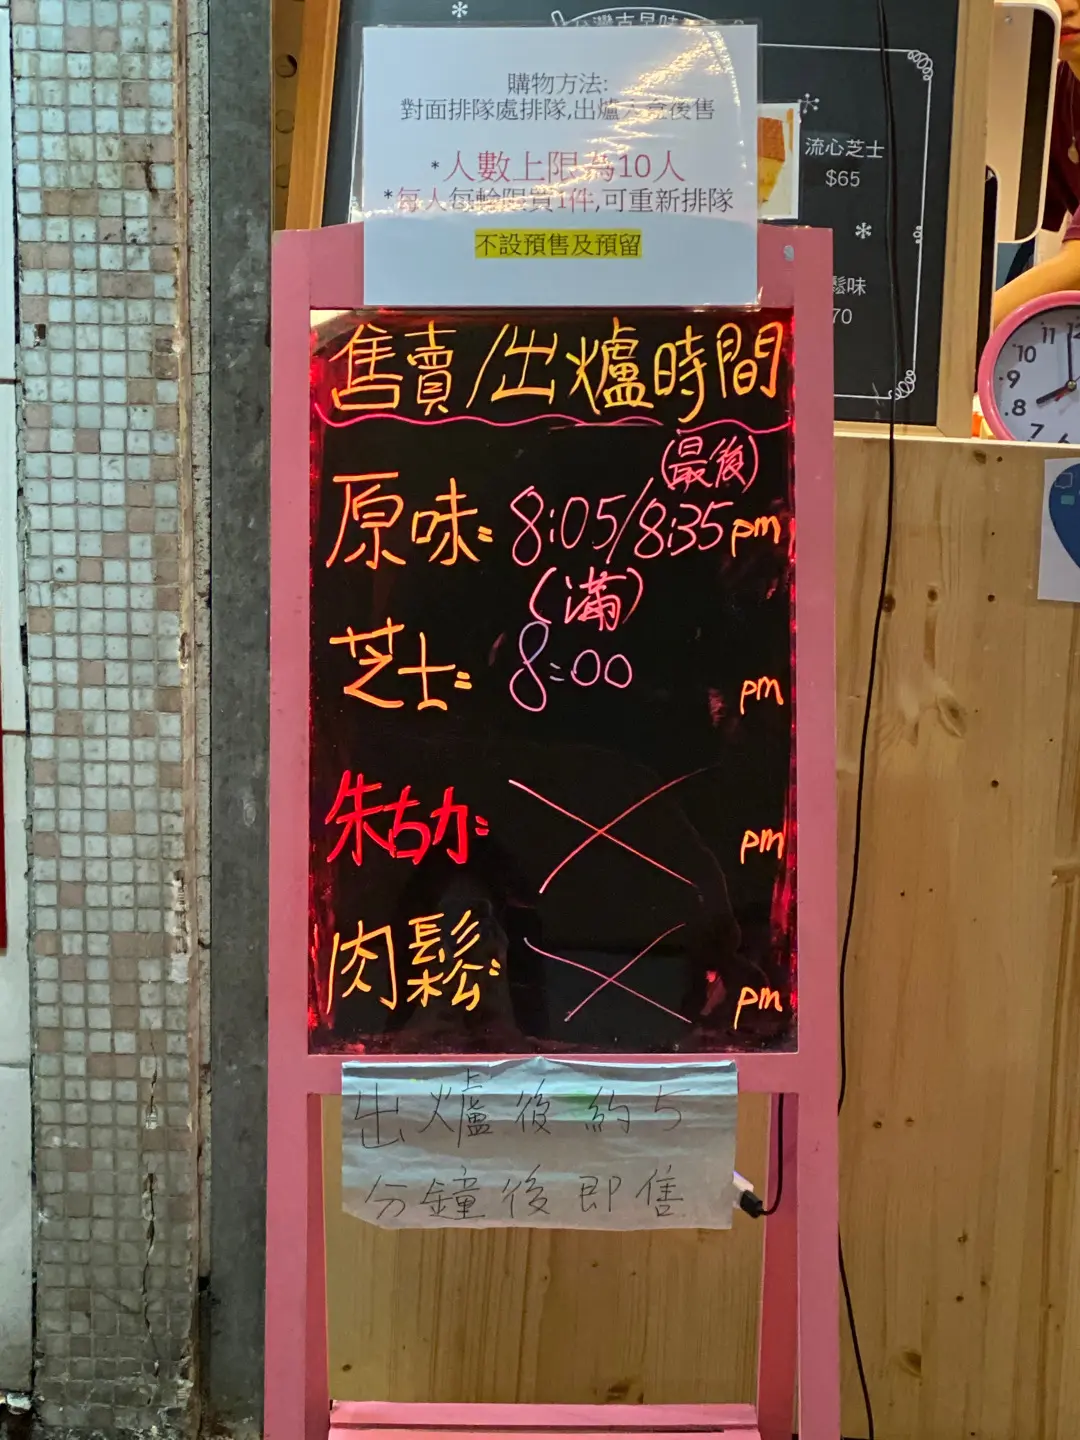 台灣古早味
購物方法:
對面排隊處排隊,出爐入盒後售
*人數上限為10人
*每人每輪限買1件,可重新排隊
不設預售及預留
流心芝士
$65
鬆味
70
售賣/出爐時間
(最後)
原味: 8:05/8:35pm
(滿)
芝士: 8:00 pm
朱古力: pm
肉鬆: pm
出爐後約5
分鐘後即售
11 12
10
9
8
7